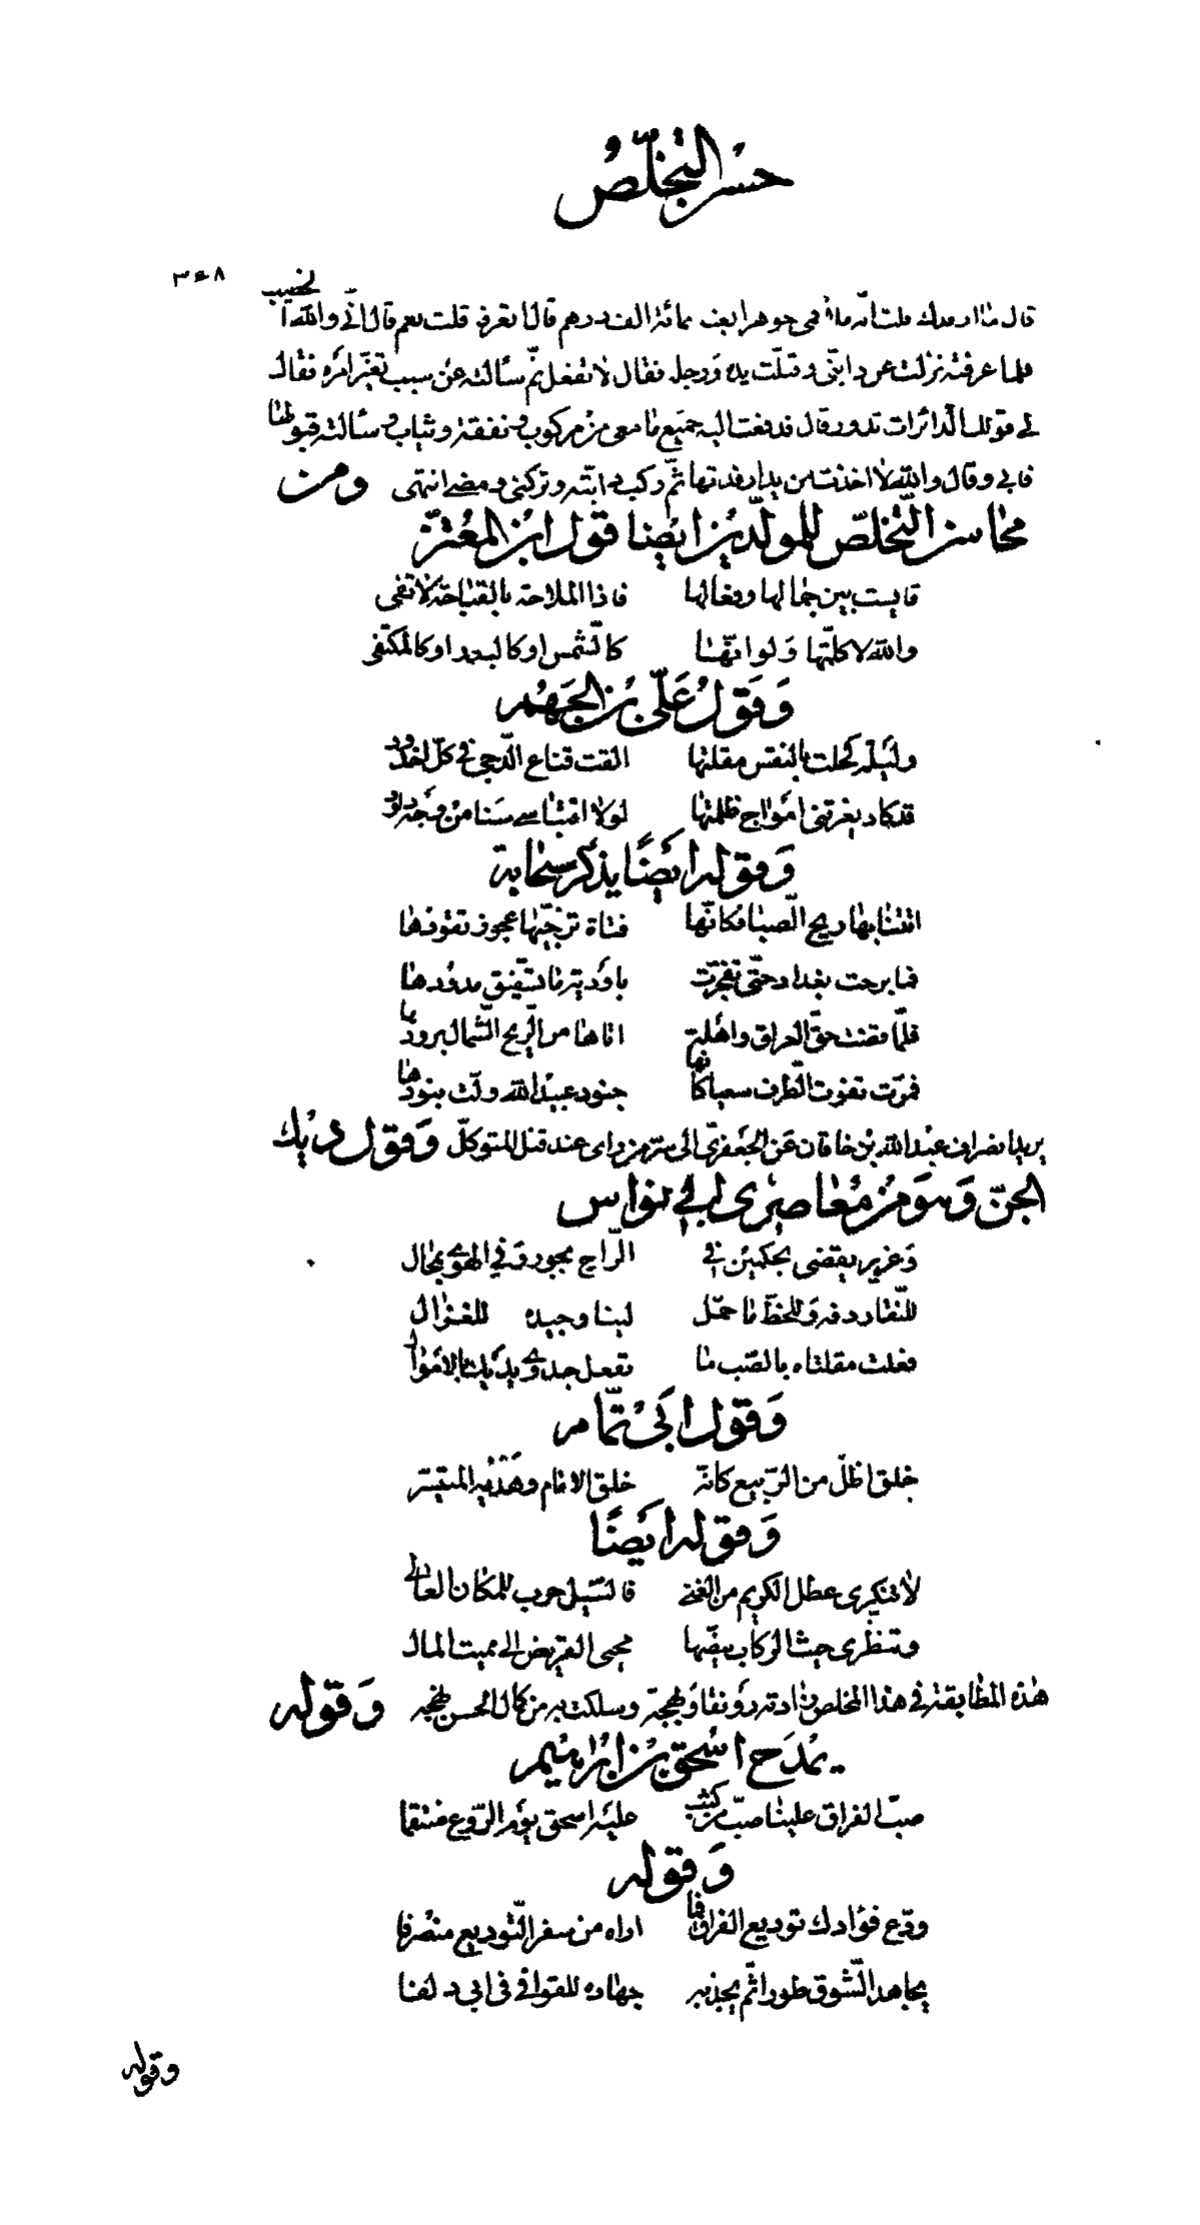 حسن التخلّص
٣٤٨
قال ما اردت قلت انّه في جوهر ابيض بمائة الف درهم قال اتعرفه قلت نعم قال انّي والله الخصيب
فلما عرفته نزلت عن دابتي وقبّلت يده ورجله فقال لا تفعل ثمّ سألته عن سبب تغيّر امره فقال
لي قولك الدائرات تدور قال فدفعت اليه جميع ما معي من مركوب ونفقة وثياب وسألته قبولها
فابى وقال والله لا اخذت من يدا رفدتها ثمّ ركب دابته وتركني ومضى انتهى ومن
محاسن التّخلّص للمولّدين ايضا قول ابن المعتزّ
قايست بين جمالها وفعالها فاذا الملاحة بالقباحة لا تفي
والله لا كلّمتها ولو انّها كالشّمس او كالبدر او كالمكتفي
وقول عليّ بن الجهم
وليلة كحلت بالنقس مقلتها القت قناع الدّجى في كلّ اخدود
قد كاد يغرقني امواج ظلمتها لولا اقتباسي سنا من وجه داود
وقوله ايضا يذكر سحابة
اتتنا بها ريح الصّبا فكانّها فتاة تزجّيها عجوز تقودها
فما برحت بغداد حتّى تفجّرت باودية ما تستفيق مدودها
فلمّا قضت حقّ العراق واهله اتاها من الرّيح الشّمال برودها
فمرّت تفوت الطّرف سعيا كانّها جنود عبيد الله ولّت بنودها
يريد انصراف عبيد الله بن خاقان عن الجعفريّ الى سرّ من راى عند قتل المتوكلّ وقول ديك
الجنّ وهو من معاصري ابي نواس
وعزيز يقضي بحكمين في الرّاح بجور وفي الهوى بمحال
للنّقا ردفه وللخطّ ما حمّل لينا وجيده للغزال
فعلت مقلتاه بالصّب ما تفعل جدوى يديك بالاموال
وقول ابي تمّام
خلق اطلّ من الرّبيع كانّه خلق الامام وهديه المتيسّر
وقوله ايضا
لا تنكري عطل الكريم من الغنى فالسّيل حرب للمكان العالي
وتنظّري حيث الركاب ينصّها محيي القريض الى مميت المال
هذه المطابقة في هذا المخلص زادته رونقا وبهجة وسلكت به من كمال الحسن نهجه وقوله
يمدح اسحق بن ابراهيم
صبّ الفراق علينا صبّ من كثب عليه اسحق يوم الرّوع منتقما
وقوله
ودّع فؤادك توديع الفراق فما اراه من سفر التّوديع منصرفا
يجاهد الشّوق طورا ثمّ يجذبه جهاده للقوافي في ابي دلفا
وقوله